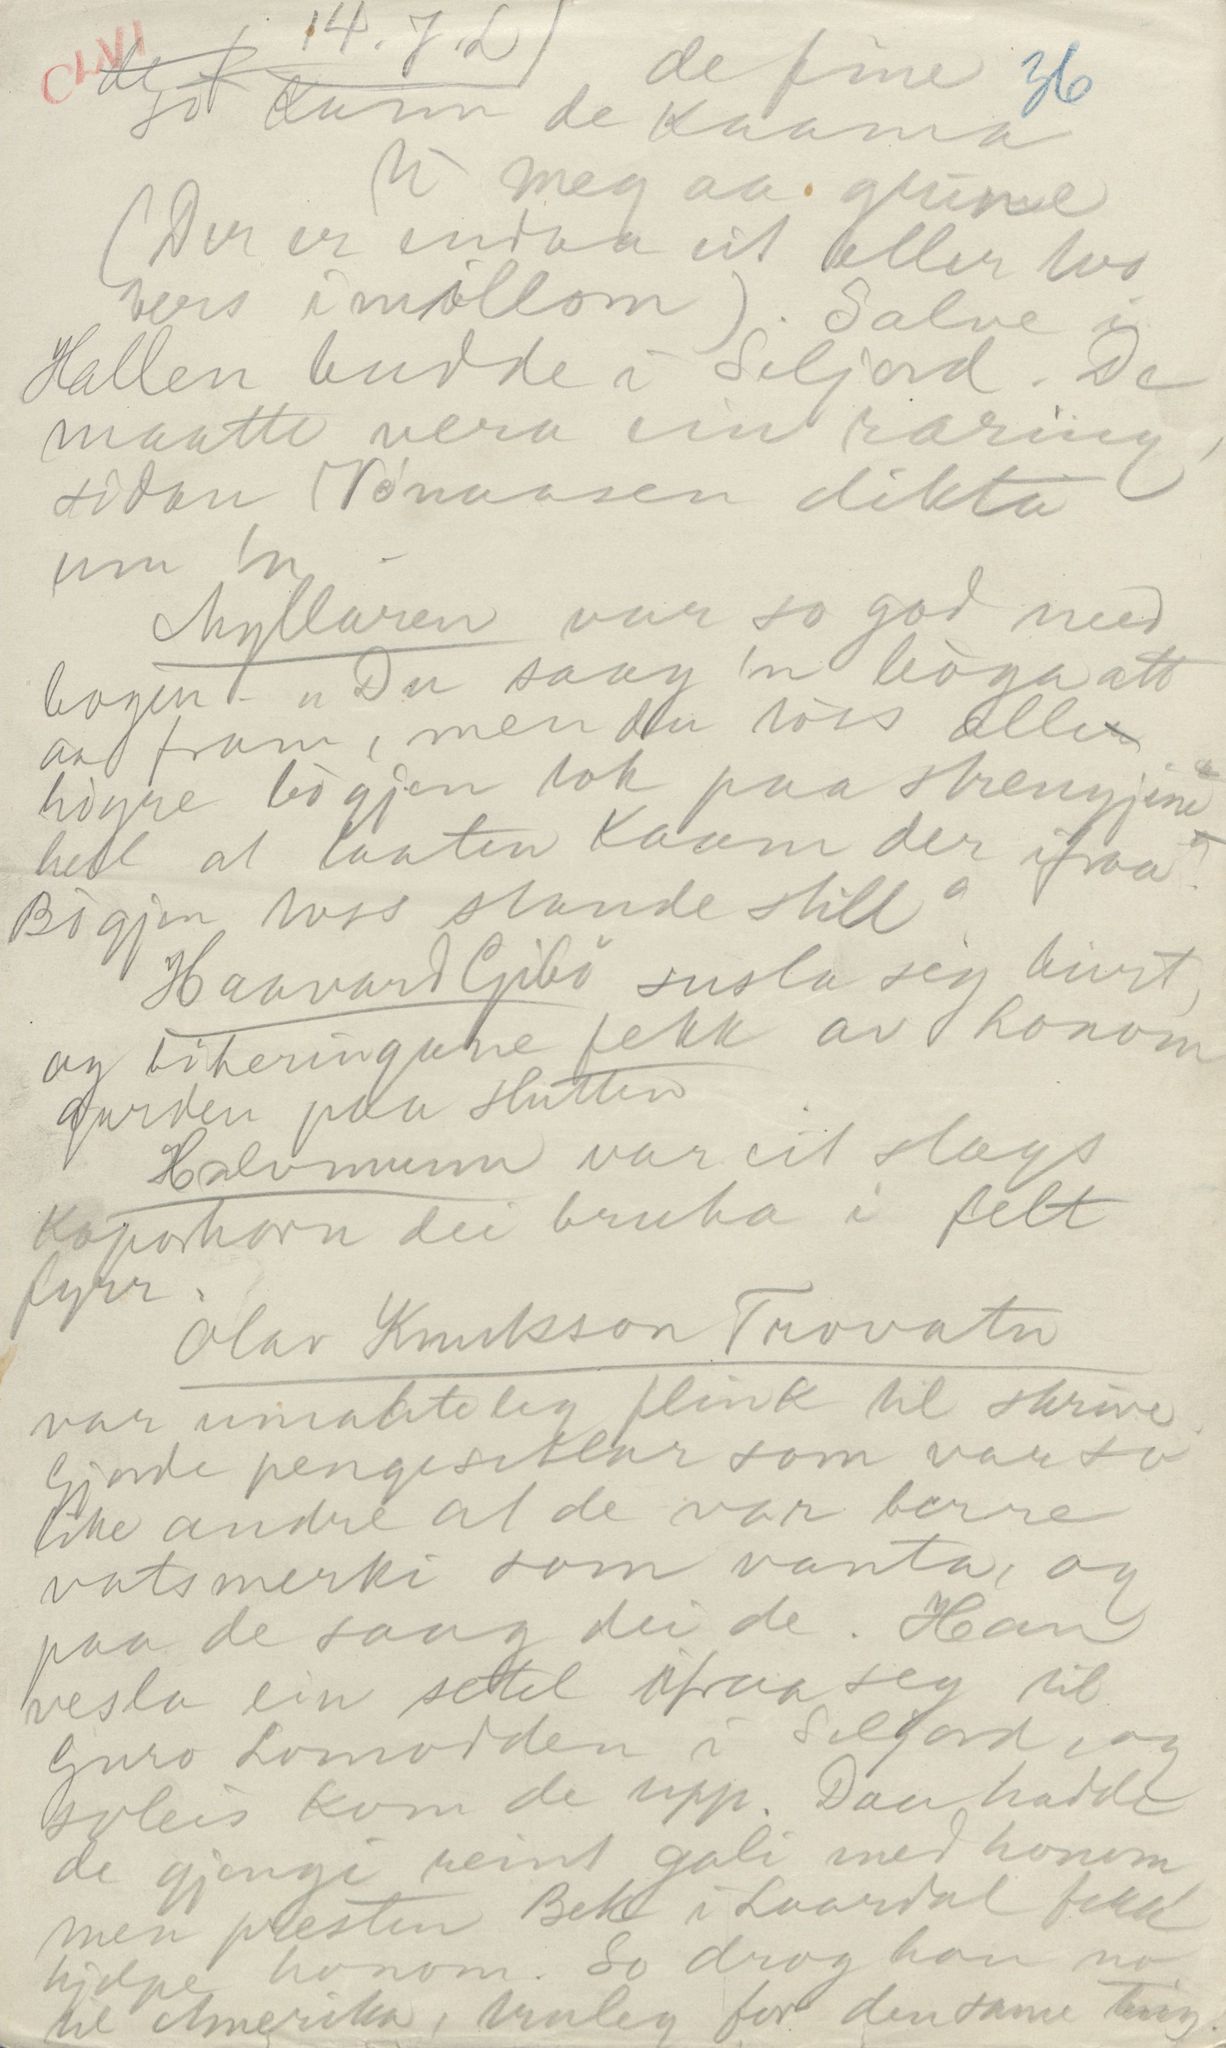 14.7.L) de fine 36
so kunn de kaama
ti meg aa grine
(Der er endaa eit eller tvo
vers imillom). Salve i
Hallen budde i Seljord. De
maatte vera ein raring,
sidan Vönaasen dikta
um 'n.
Myllaren var so god med
bogin. "Du saag 'n böga att
aa fram, men du töss alle
högre bögjen tok paa strengjine
hell at laaten kaam der ifraa."
Bögjen töss stande still"
Haavard Gibö susla seg burt,
og biheringane fekk av honom
garden paa slutten
Halvmunn var eit slags
koparhorn dei bruka i felt
fyrr.
Olav Knutsson Trovatn
var umaateleg flink til skrive.
Gjorde pengesetlar som var so
like andre at de var berre
vatsmerki som vanta, og
paa de saag dei de. Han
vesla ein setel ifraa seg til
Guro Lomodden i Seljord, og
soleis kom de upp. Daa hadde
de gjengi reint gali med honom
men presten Bek i Laardal fekk
hjelpe honom. So drog han no
til Amerika, truleg for den same ting.